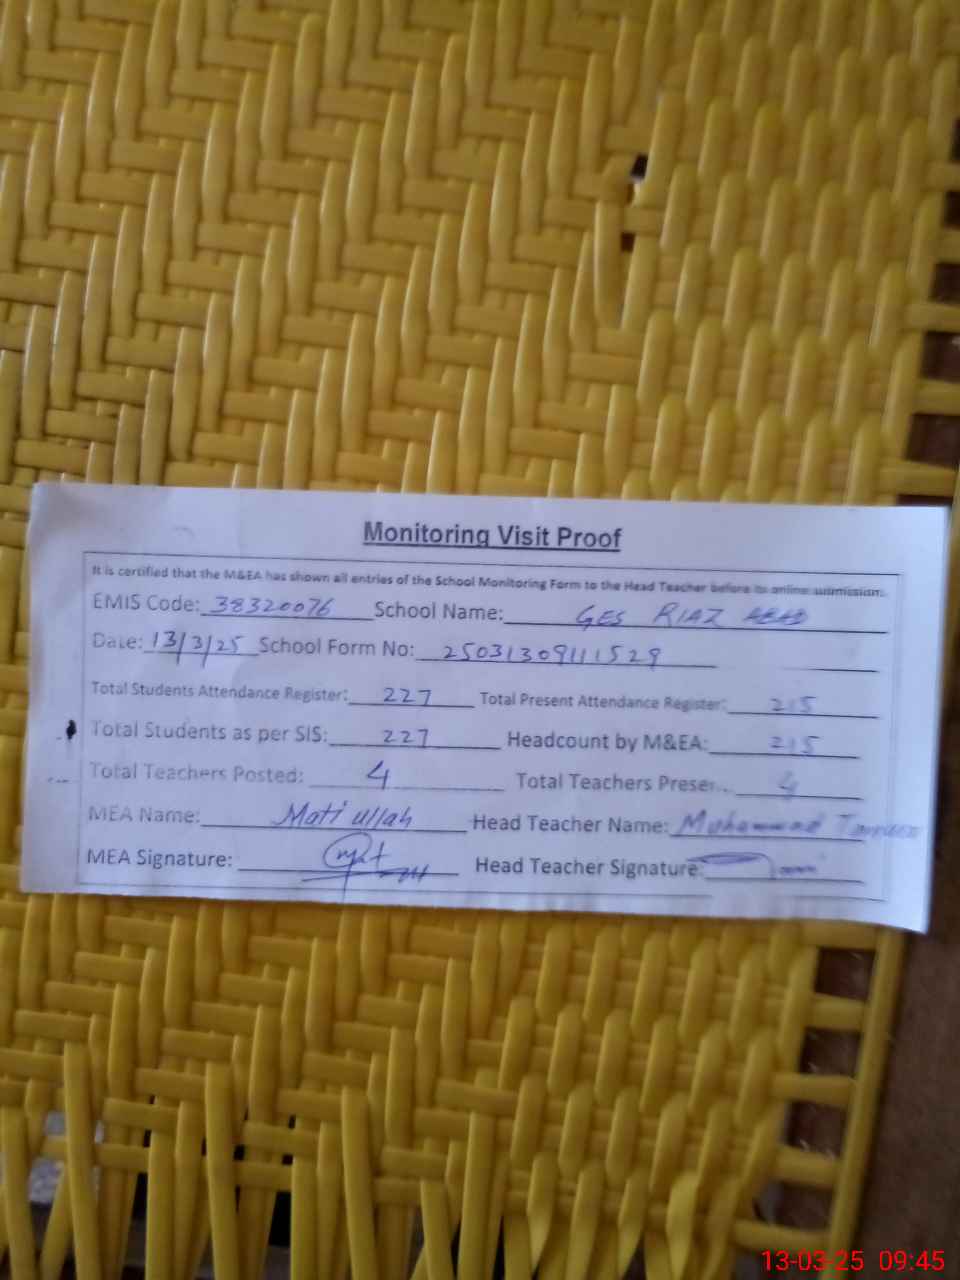 Monitoring Visit Proof
It is certified that the M&EA has shown all entries of the School Monitoring Form to the Head Teacher before its online submission.
EMIS Code: 38320076 School Name: GES RIAZ ABAD
Date: 13/3/25 School Form No: 25031309111529
Total Students Attendance Register: 227 Total Present Attendance Register: 215
Total Students as per SIS: 227 Headcount by M&EA: 215
Total Teachers Posted: 4 Total Teachers Presen.. 4
MEA Name: Mati ullah Head Teacher Name: Muhammad
MEA Signature: Head Teacher Signature:
13-03-25 09:45